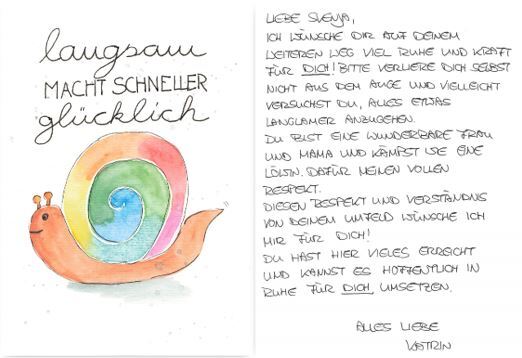 langsam
MACHT SCHNELLER
glücklich
LIEBE SVENJA,
ICH WÜNSCHE DIR AUF DEINEM
WEITEREN WEG VIEL RUHE UND KRAFT
FÜR DICH! BITTE VERLIERE DICH SELBST
NICHT AUS DEM AUGE UND VIELLEICHT
VERSUCHST DU, ALLES ETWAS
LANGSAMER ANZUGEHEN.
DU BIST EINE WUNDERBARE FRAU
UND MAMA UND KÄMPFST WIE EINE
LÖWIN. DAFÜR MEINEN VOLLEN
RESPEKT.
DIESEN RESPEKT UND VERSTÄNDNIS
VON DEINEM UMFELD WÜNSCHE ICH
MIR FÜR DICH!
DU HAST HIER VIELES ERREICHT
UND KANNST ES HOFFENTLICH IN
RUHE FÜR DICH UMSETZEN.
ALLES LIEBE
KATRIN